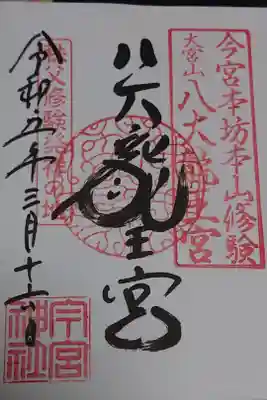 今宮本坊本山修験
大宮山 八大龍王宮
八大龍王宮
秩父修験発祥の地
令和五年三月十六日
今宮神社